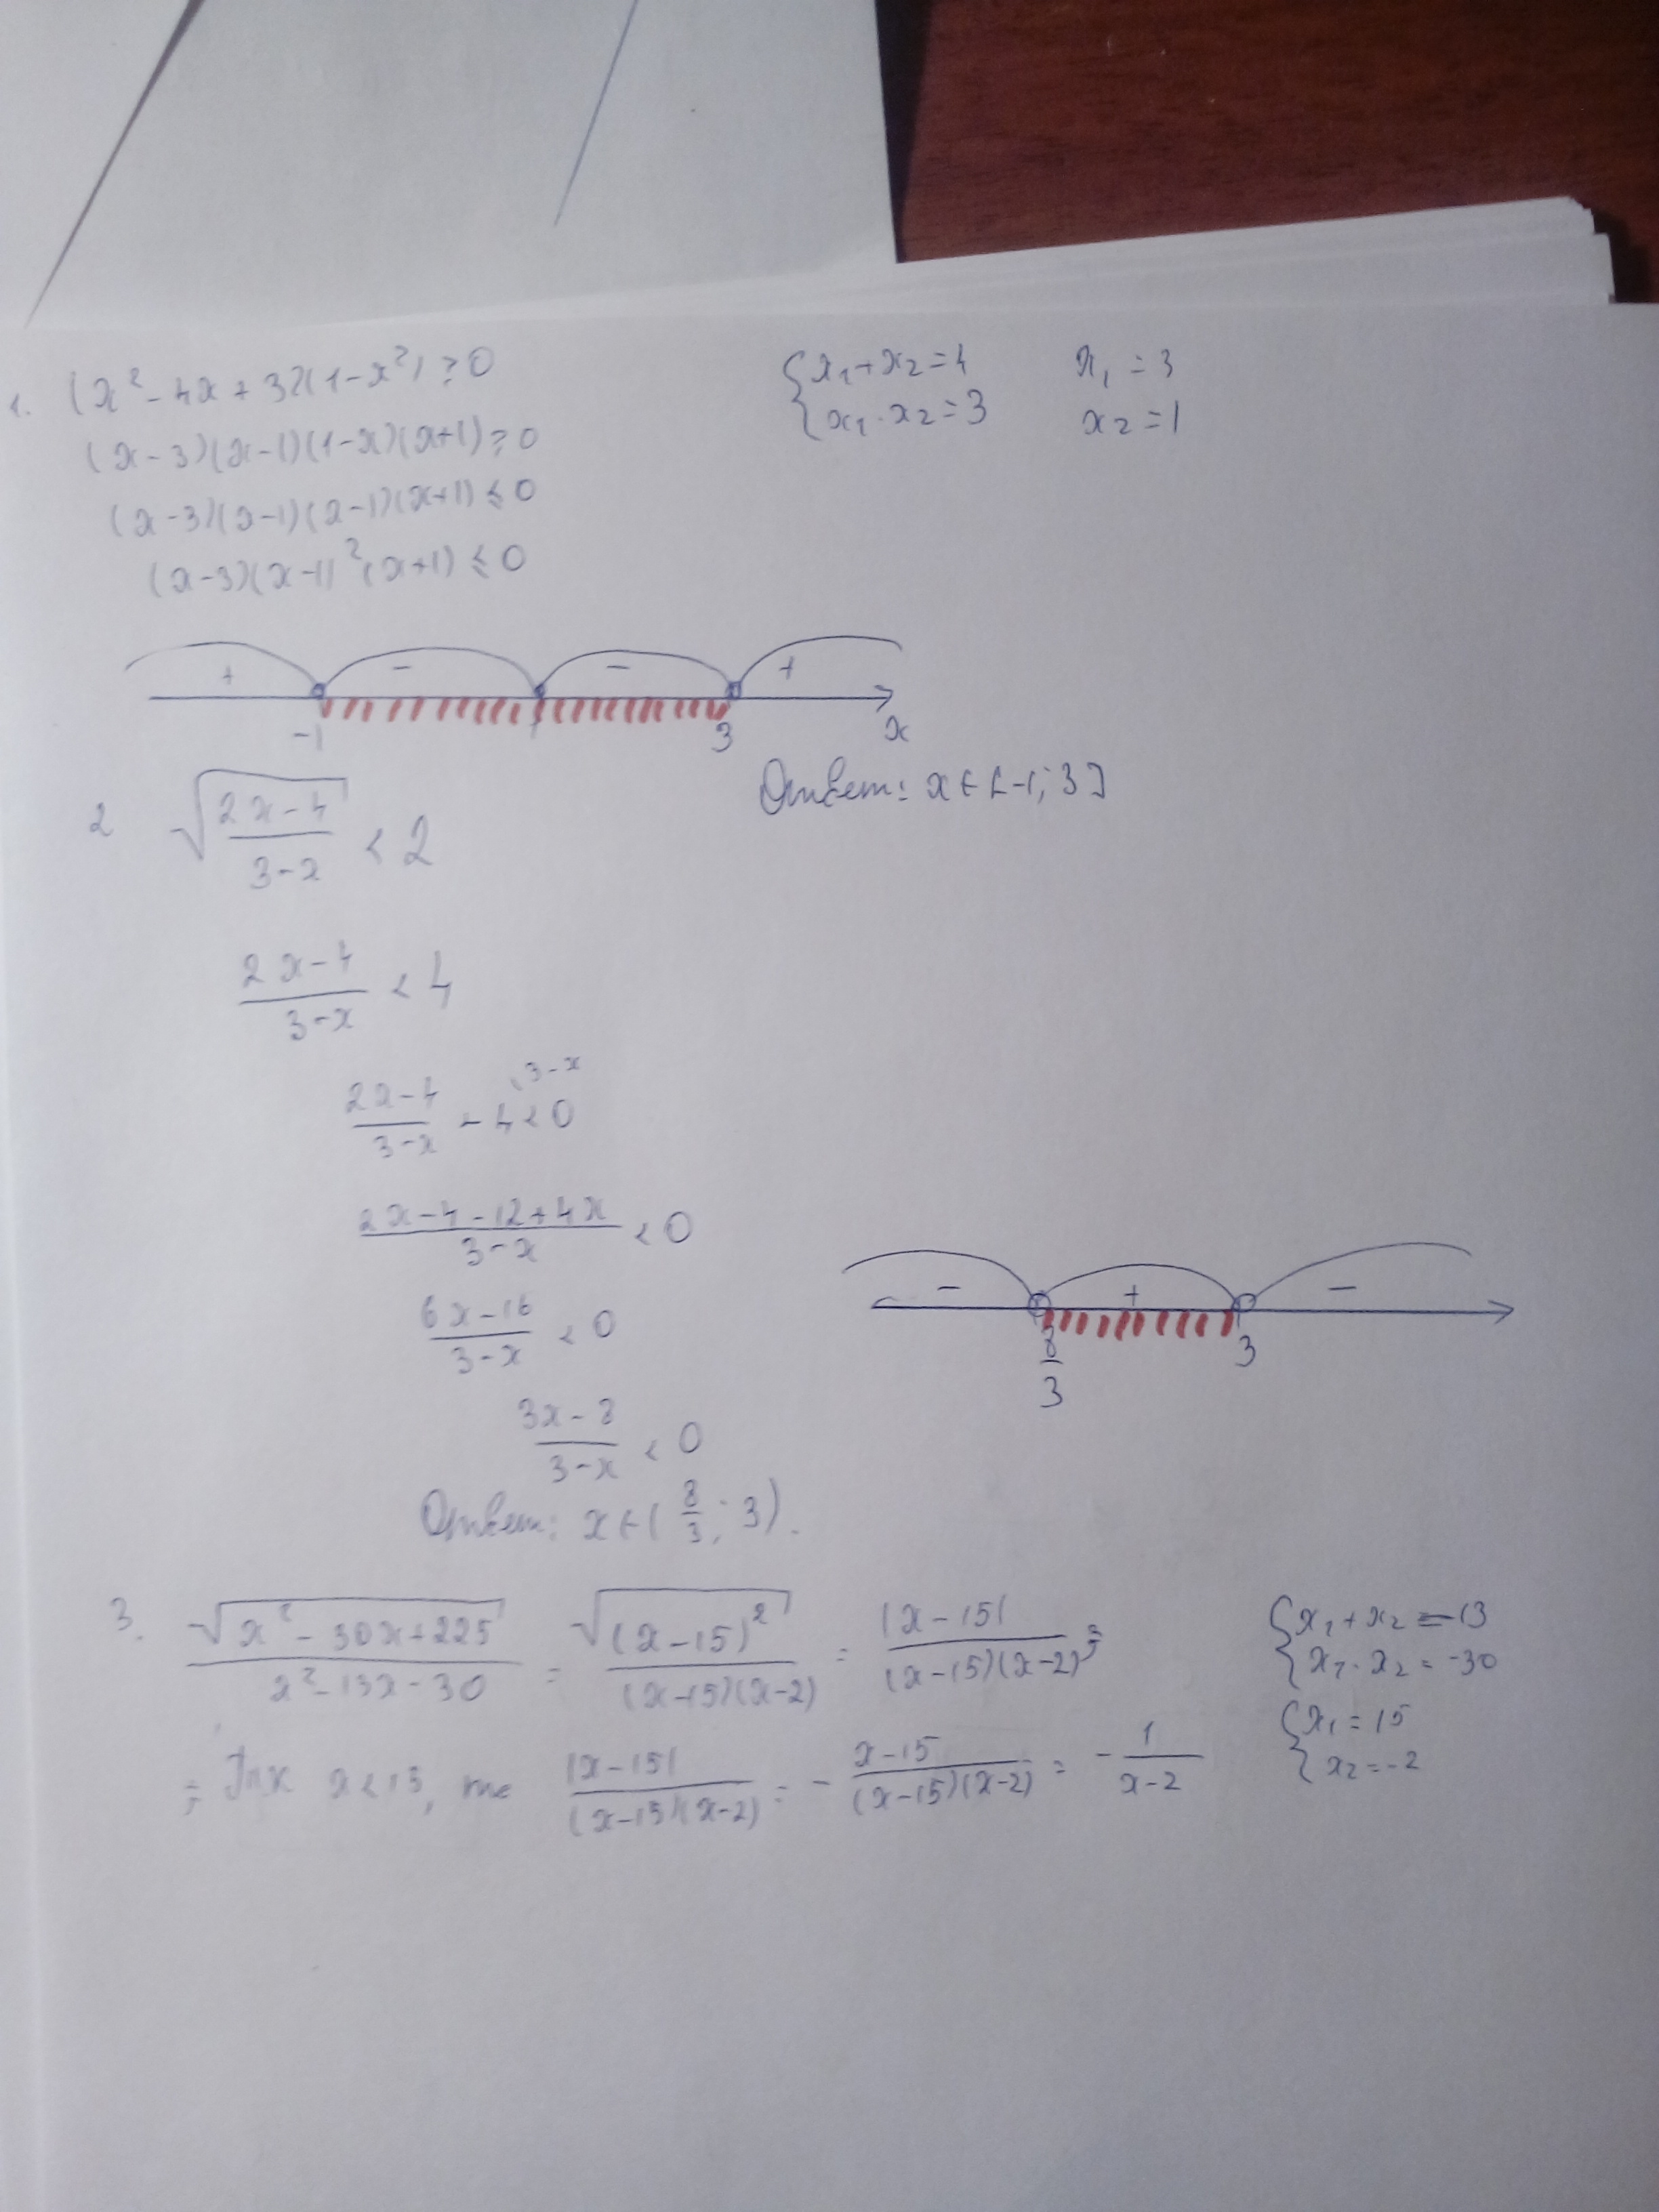 1. (x² - 4x + 3)(1 - x²) ≥ 0
{x₁ + x₂ = 4
x₁ · x₂ = 3
x₁ = 3
x₂ = 1
(x - 3)(x - 1)(1 - x)(x + 1) ≥ 0
(x - 3)(x - 1)(x - 1)(x + 1) ≤ 0
(x - 3)(x - 1)²(x + 1) ≤ 0
+ - - +
-1 1 3 x
Ответ: x ∈ [-1; 3]
2 √((2x - 4)/(3 - x)) < 2
(2x - 4)/(3 - x) < 4
(2x - 4)/(3 - x) - 4 \ 3 - x < 0
(2x - 4 - 12 + 4x)/(3 - x) < 0
(6x - 16)/(3 - x) < 0
- + -
8/3 3
(3x - 8)/(3 - x) < 0
Ответ: x ∈ (8/3; 3).
3. √(x² - 30x + 225)/(x² - 13x - 30) = √((x - 15)²)/((x - 15)(x - 2)) = |x - 15|/((x - 15)(x - 2)) =
{x₁ + x₂ = 13
x₁ · x₂ = -30
{x₁ = 15
x₂ = -2
= Т.к x < 13, то |x - 15|/((x - 15)(x - 2)) = - (x - 15)/((x - 15)(x - 2)) = - 1/(x - 2)